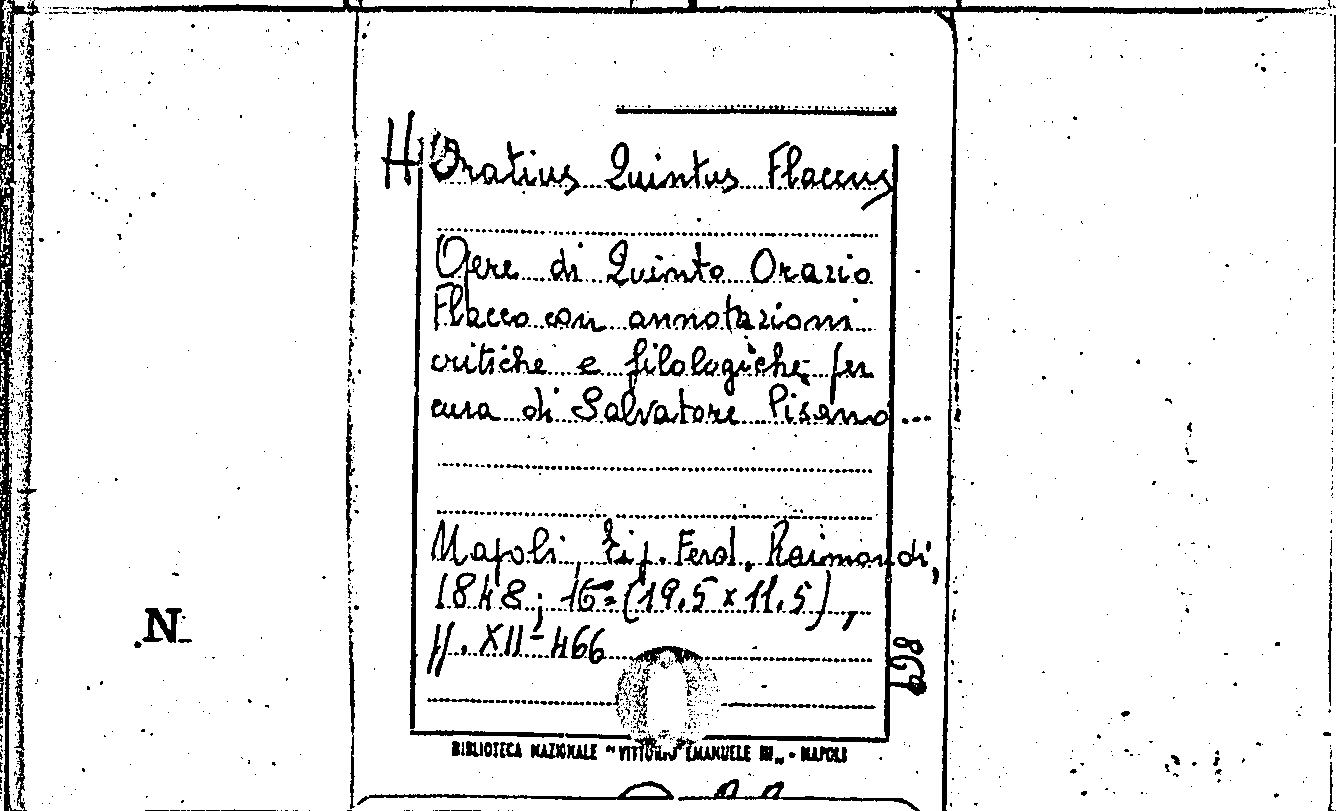 Horatius Quintus Flaccus
Opere di Quinto Orazio
Flacco con annotazioni
critiche e filologiche per
cura di Salvatore Pisano...
Napoli, tip. Ferd. Raimondi,
1848; 16º (19,5 x 11,5),
pp. XII-466
N
BIBLIOTECA NAZIONALE "VITTORIO EMANUELE III" - NAPOLI